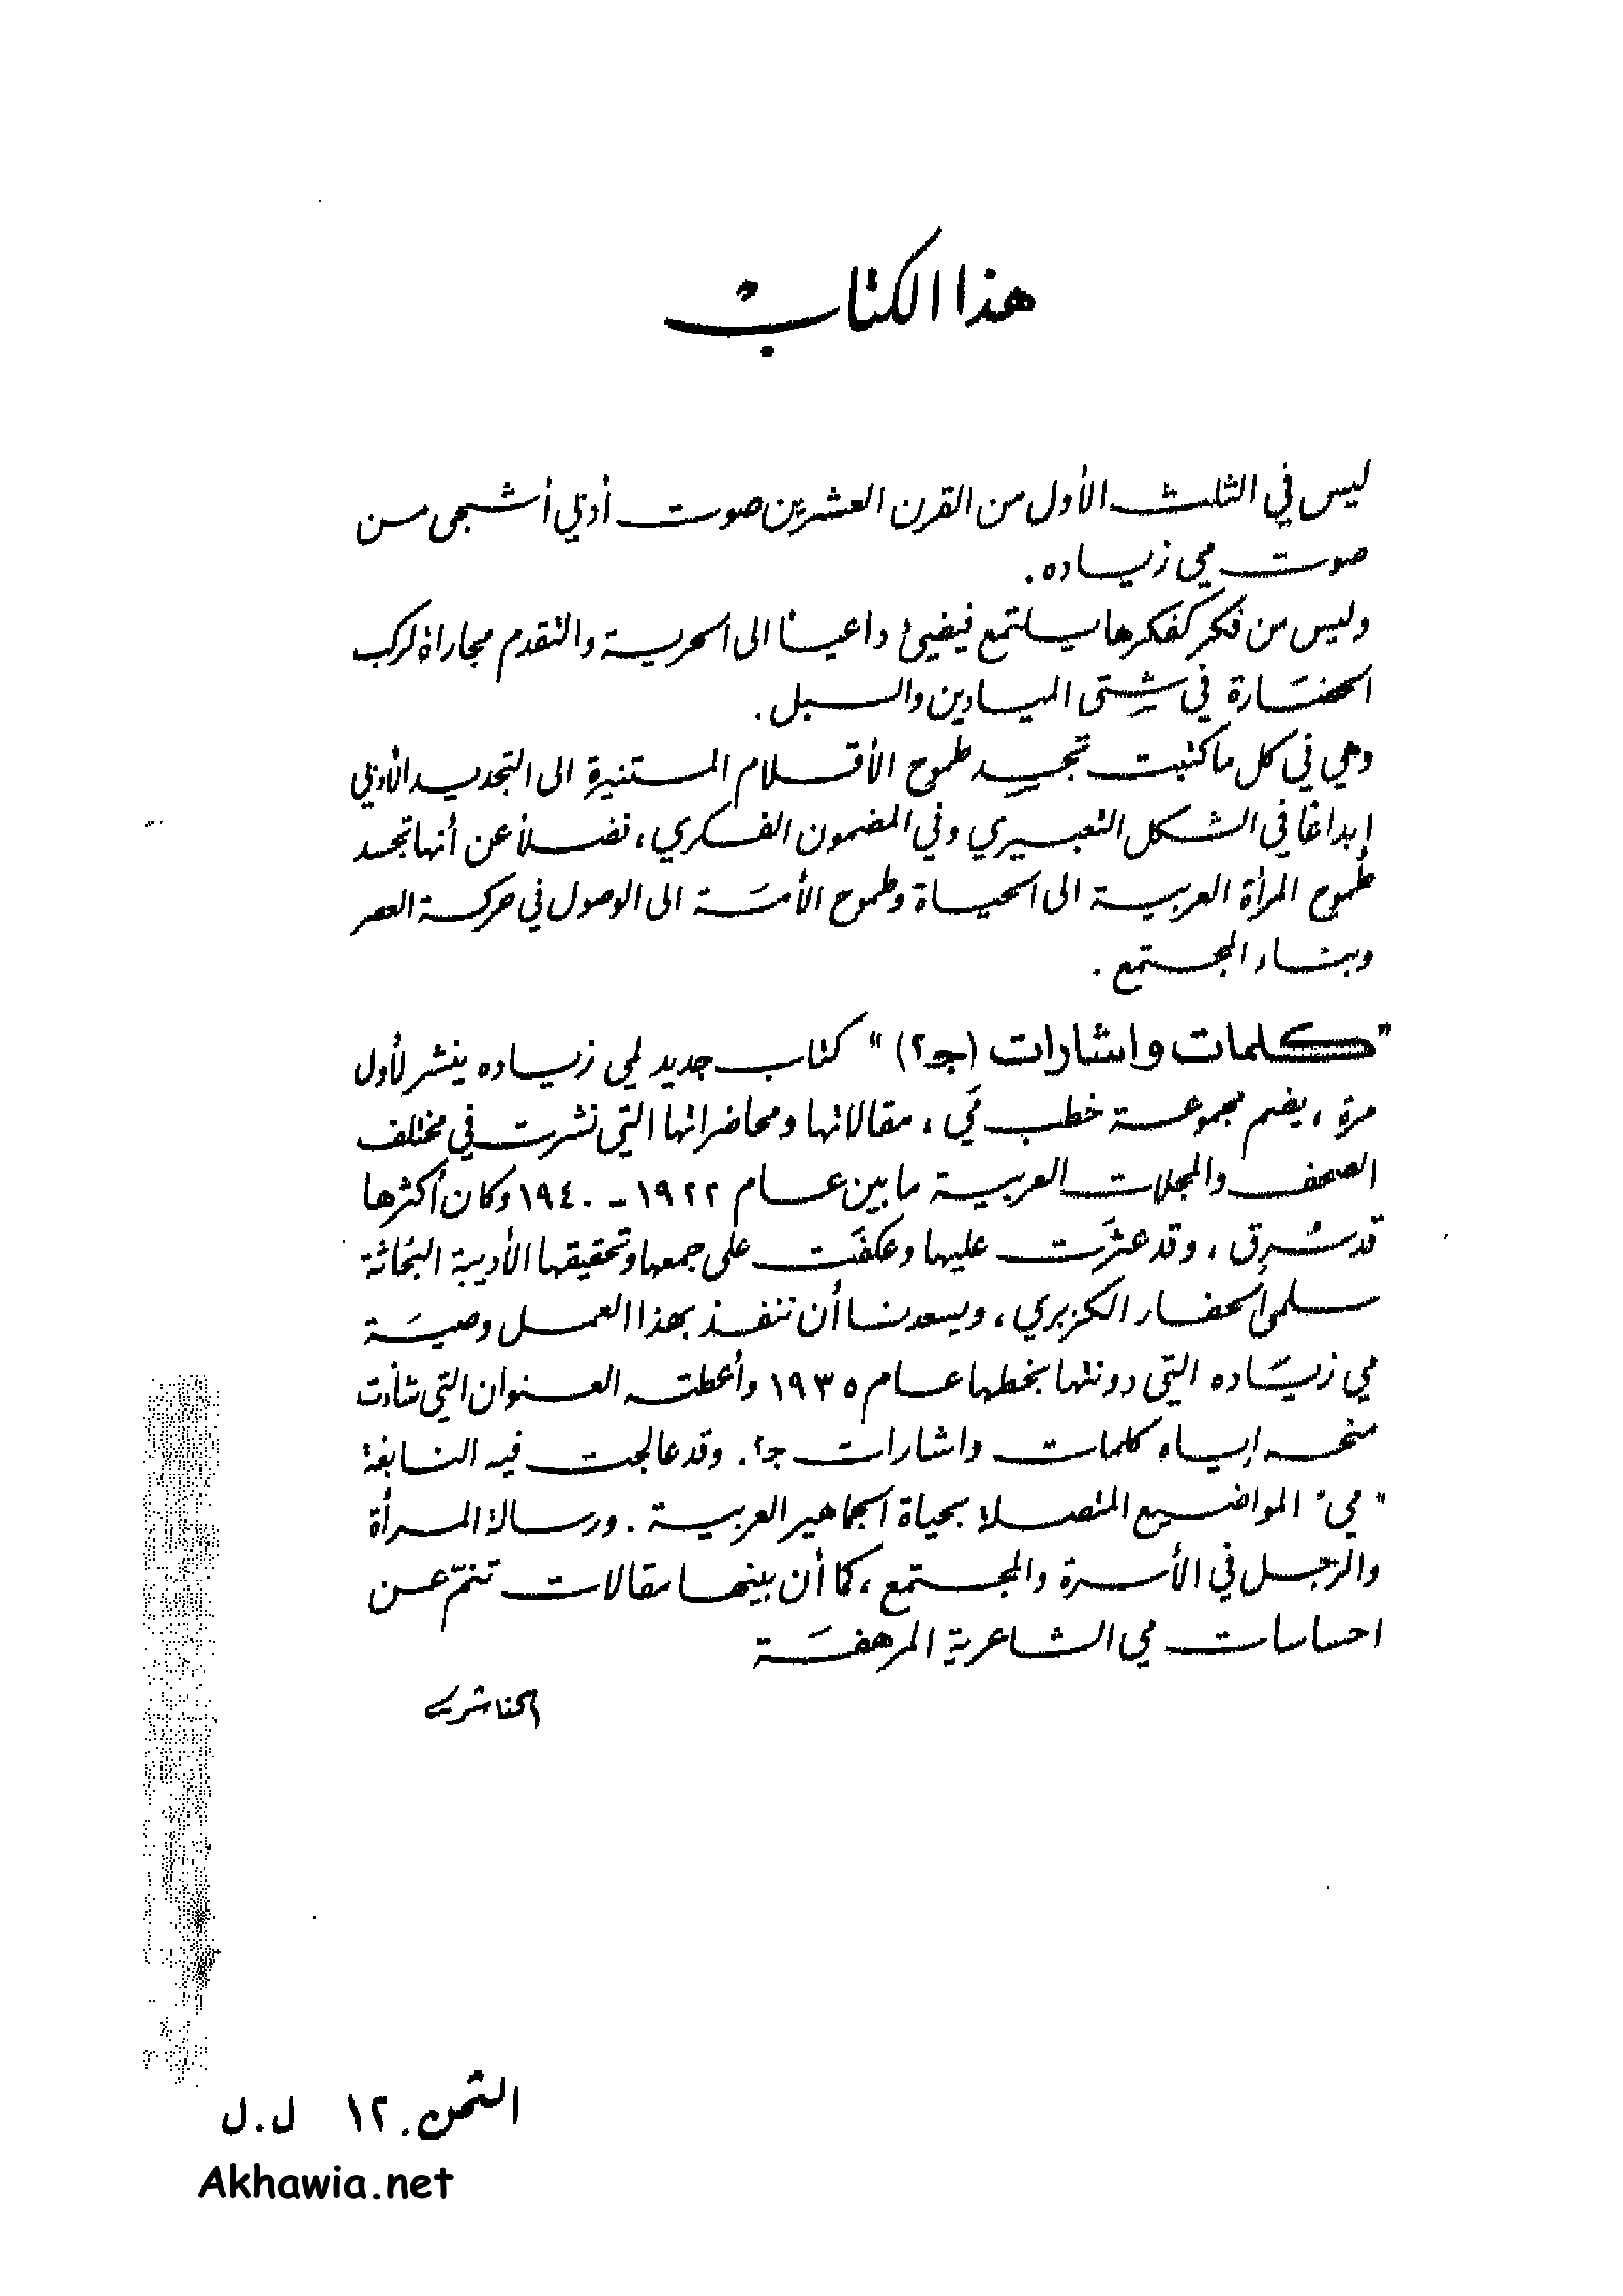 هذا الكتاب
ليس في الثلث الأول من القرن العشرين صوت أدبي أشجى من
صوت مي زياده.
وليس من فكر كفكرها يلتمع فيضيئ داعياً الى الحرية والتقدم مجاراة لركب
الحضَارة في شِتى الميادين والسبل.
وهي في كل ما كتبت تجسِد طموح الأقلام المستنيرة الى التجديد الأدبي
إبداعًا في الشكل التعبيري وفي المضمون الفكري، فضلاً عن أنها تجسد
طُموح المرأة العربية الى الحياة وطموح الأمَة الى الوصول في حركة العصر
وبناء المجتمع.
"كلمات واشارات (ج٢)" كتاب جديد لمي زياده ينشر لأول
مرة، يضم مجموعة خطب مَي، مقالاتها ومحاضراتها التي نشرت في مختلف
الصحف والمجلات العربية ما بين عام ١٩٢٢ - ١٩٤٠ وكان أكثرها
قد سُرِق، وقد عثَرت عليها وعكفَت على جمعها وتحقيقها الأديبة البحَاثة
سلمى الحفار الكزبري، ويسعدنا أن تنفذ بهذا العمل وصيَة
مي زيَاده التي دونتها بخطها عام ١٩٣٥ وأعطته العنوان التي شاءت
منحه إياه كلمات واشارات ج٢. وقد عالجت فيه النابغة
"مي" المواضيع المتصلة بحياة الجماهير العربية. ورسالة المرأة
والرّجل في الأسرة والمجتمع، كما أن بينها مقالات تنمّ عن
احساسات مي الشاعرية المرهفَة
الناشر
الثمن. ١٢ ل.ل
Akhawia.net